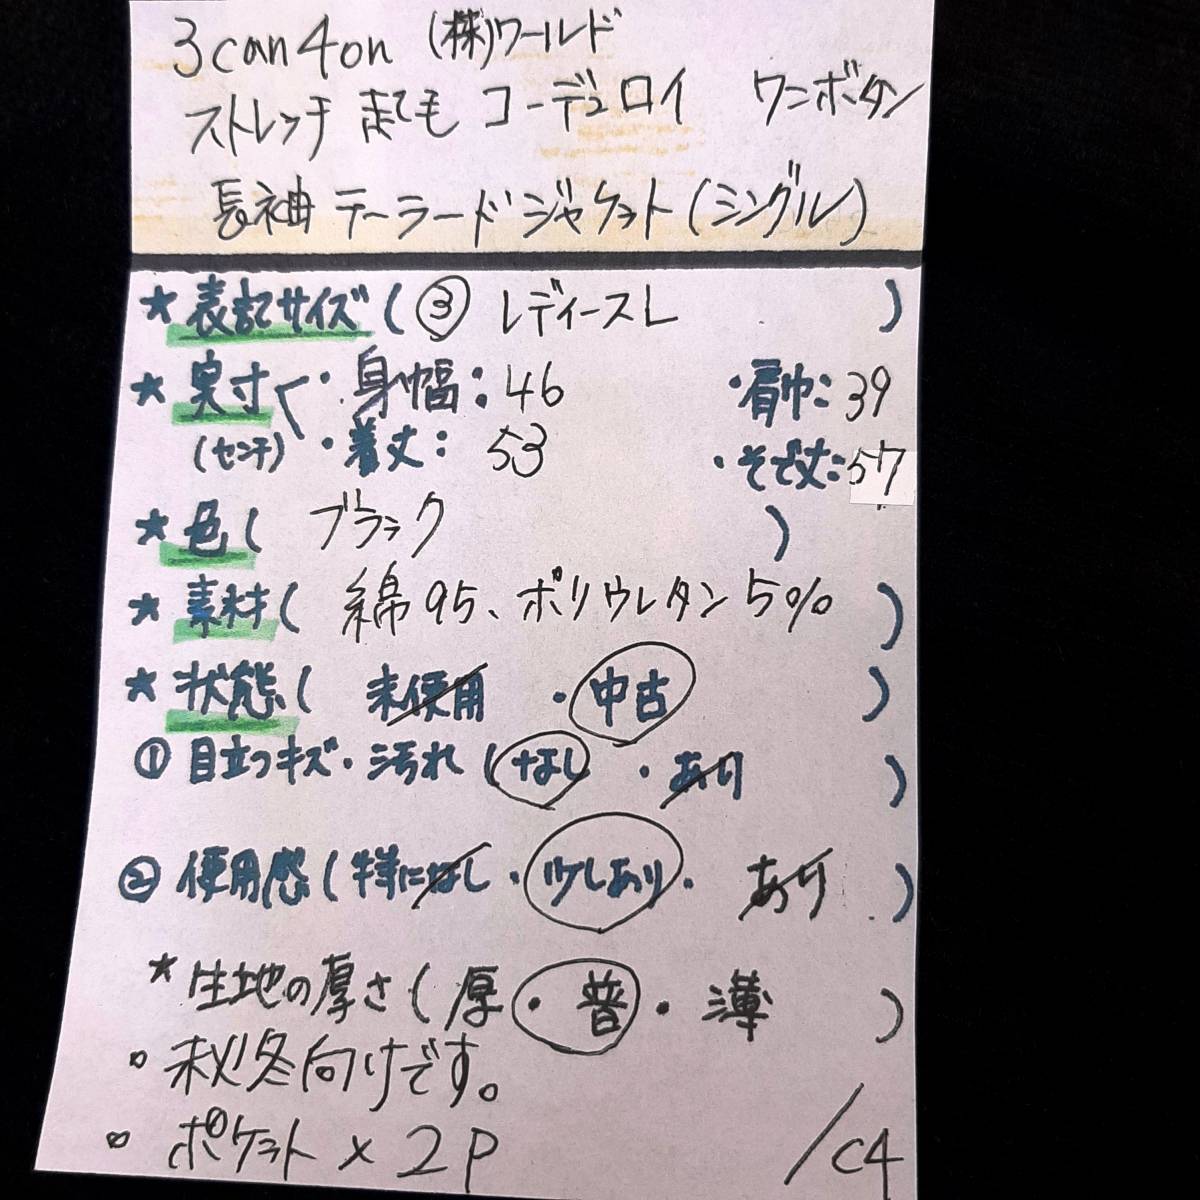 3can4on (株)ワールド
ストレッチ とても コーデュロイ ワンボタン
長袖 テーラードジャケット(シングル)
★表記サイズ(③ レディースL )
★実寸 ・身幅:46 ・肩巾:39
(センチ) ・着丈:53 ・そで丈:57
★色( ブラック )
★素材( 綿95、ポリウレタン5% )
★状態( 未使用 ・中古 )
①目立つキズ・汚れ(なし ・あり )
②使用感(特になし・少しあり・ あり )
★生地の厚さ(厚・普・薄 )
○秋冬向けです。
○ポケット×2P /C4